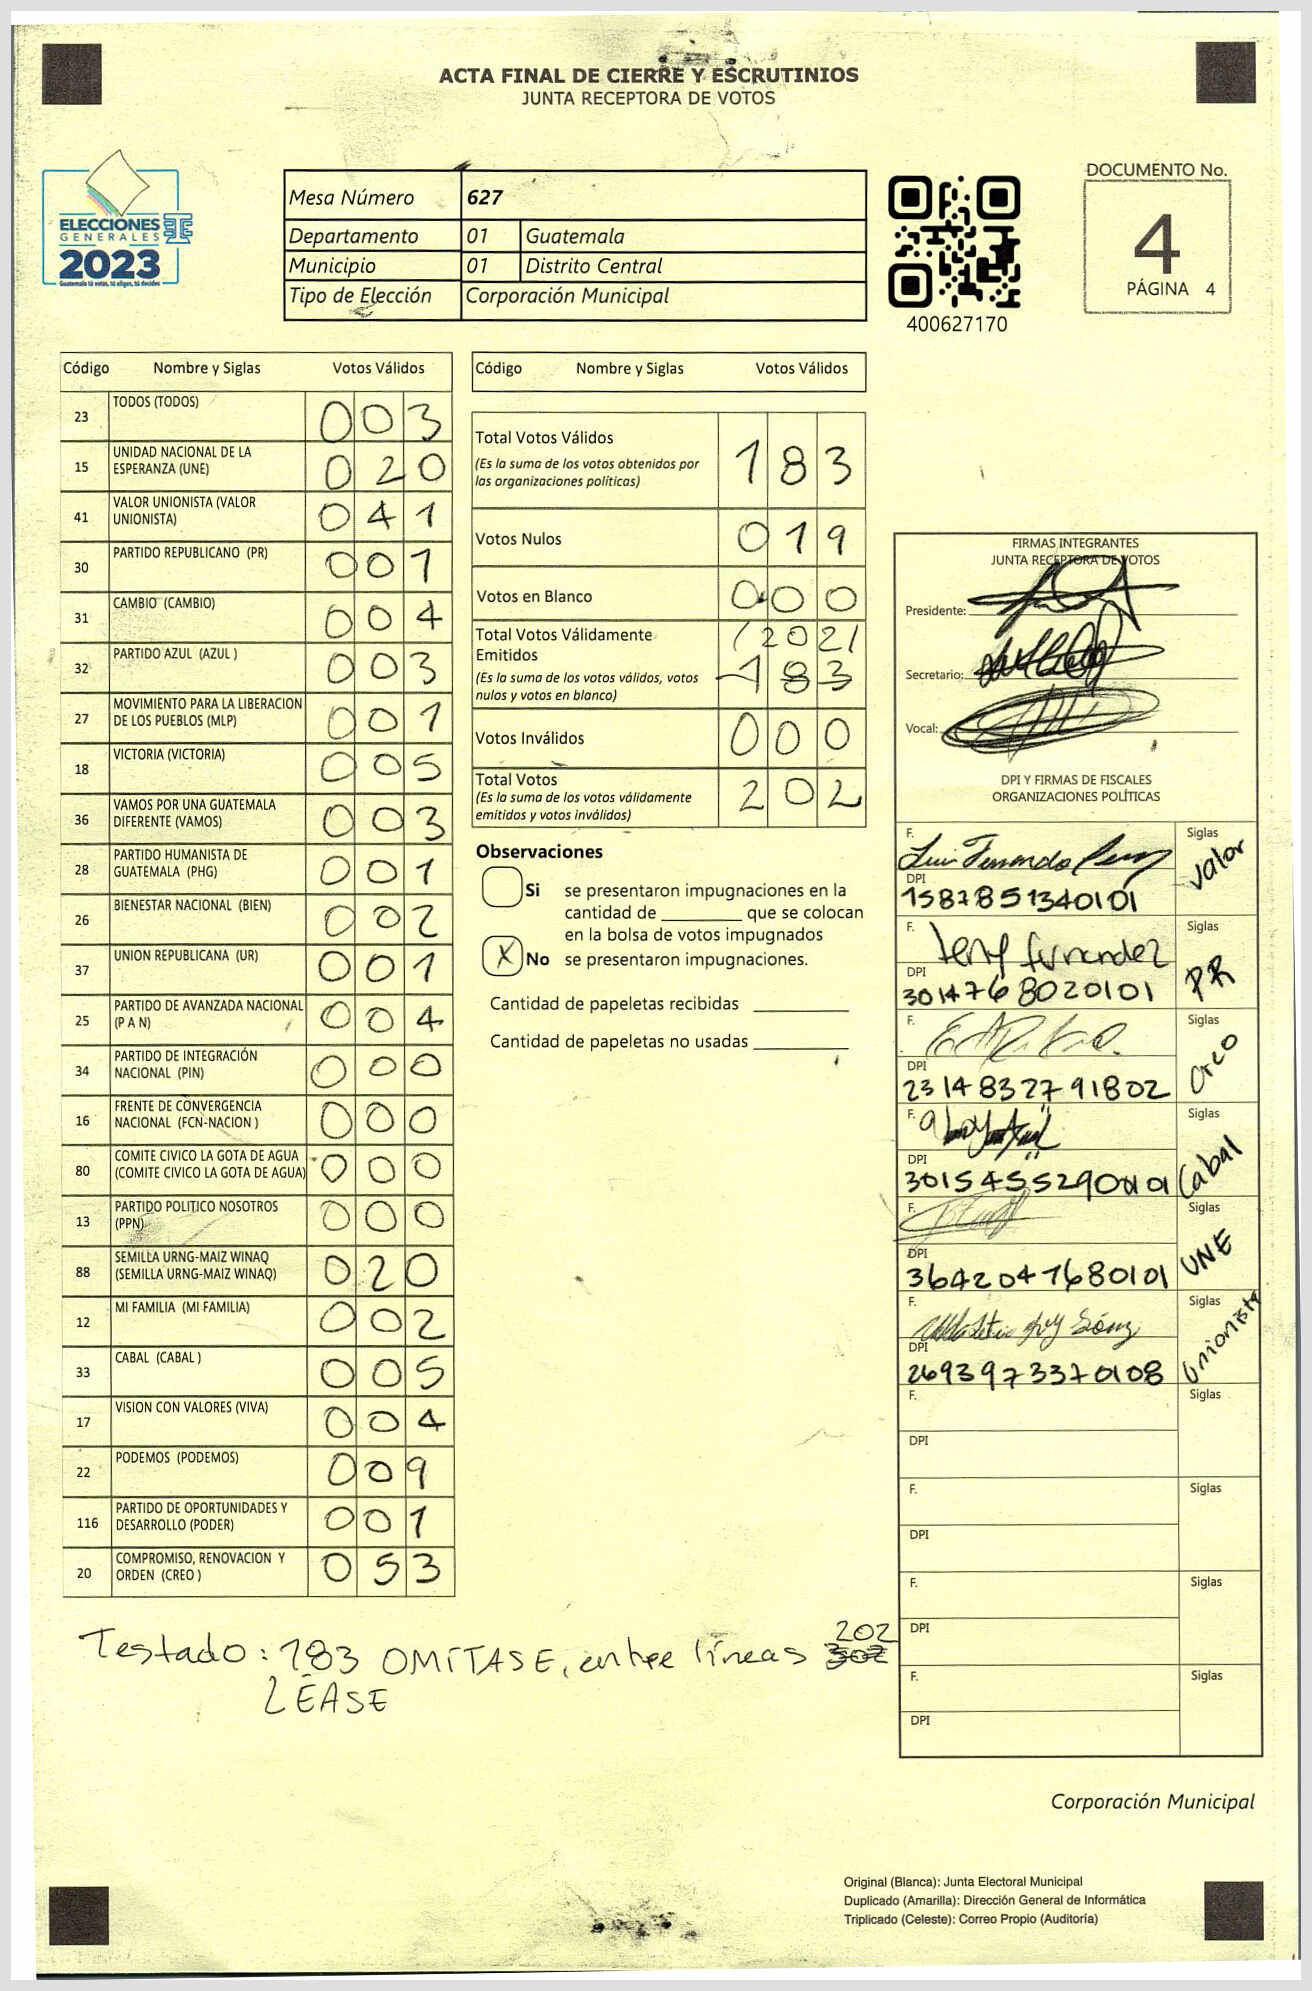 ACTA FINAL DE CIERRE Y ESCRUTINIOS
JUNTA RECEPTORA DE VOTOS
ELECCIONES
GENERALES
2023
Guatemala tú votas, tú eliges, tú decides
Mesa Número 627
Departamento 01 Guatemala
Municipio 01 Distrito Central
Tipo de Elección Corporación Municipal
400627170
DOCUMENTO No.
4
PÁGINA 4
Código Nombre y Siglas Votos Válidos
23 TODOS (TODOS) 003
15 UNIDAD NACIONAL DE LA ESPERANZA (UNE) 020
41 VALOR UNIONISTA (VALOR UNIONISTA) 041
30 PARTIDO REPUBLICANO (PR) 001
31 CAMBIO (CAMBIO) 004
32 PARTIDO AZUL (AZUL ) 003
27 MOVIMIENTO PARA LA LIBERACION DE LOS PUEBLOS (MLP) 001
18 VICTORIA (VICTORIA) 005
36 VAMOS POR UNA GUATEMALA DIFERENTE (VAMOS) 003
28 PARTIDO HUMANISTA DE GUATEMALA (PHG) 001
26 BIENESTAR NACIONAL (BIEN) 002
37 UNION REPUBLICANA (UR) 001
25 PARTIDO DE AVANZADA NACIONAL (P A N) 004
34 PARTIDO DE INTEGRACIÓN NACIONAL (PIN) 000
16 FRENTE DE CONVERGENCIA NACIONAL (FCN-NACION ) 000
80 COMITE CIVICO LA GOTA DE AGUA (COMITE CIVICO LA GOTA DE AGUA) 000
13 PARTIDO POLITICO NOSOTROS (PPN) 000
88 SEMILLA URNG-MAIZ WINAQ (SEMILLA URNG-MAIZ WINAQ) 020
12 MI FAMILIA (MI FAMILIA) 002
33 CABAL (CABAL ) 005
17 VISION CON VALORES (VIVA) 004
22 PODEMOS (PODEMOS) 009
116 PARTIDO DE OPORTUNIDADES Y DESARROLLO (PODER) 001
20 COMPROMISO, RENOVACION Y ORDEN (CREO ) 053
Código Nombre y Siglas Votos Válidos
Total Votos Válidos 183
(Es la suma de los votos obtenidos por
las organizaciones políticas)
Votos Nulos 019
Votos en Blanco 000
Total Votos Válidamente (202)
Emitidos
183
(Es la suma de los votos válidos, votos
nulos y votos en blanco)
Votos Inválidos 000
Total Votos 202
(Es la suma de los votos válidamente
emitidos y votos inválidos)
Observaciones
Si se presentaron impugnaciones en la
cantidad de ________ que se colocan
en la bolsa de votos impugnados
X No se presentaron impugnaciones.
Cantidad de papeletas recibidas
Cantidad de papeletas no usadas
FIRMAS INTEGRANTES
JUNTA RECEPTORA DE VOTOS
Presidente:
Secretario:
Vocal:
DPI Y FIRMAS DE FISCALES
ORGANIZACIONES POLÍTICAS
F. Siglas
Valor
DPI
1587851340101
F. Siglas
PR
DPI
3014768020101
F. Siglas
Creo
DPI
2314832791802
F. Siglas
Cabal
DPI
F. Siglas
UNE
DPI
3642047680101
F. Siglas
Unionista
DPI
2693973370108
F. Siglas
DPI
F. Siglas
DPI
F. Siglas
DPI
F. Siglas
DPI
Testado: 183 OMITASE, entre líneas 302 202
LÉASE
Corporación Municipal
Original (Blanca): Junta Electoral Municipal
Duplicado (Amarilla): Dirección General de Informática
Triplicado (Celeste): Correo Propio (Auditoría)